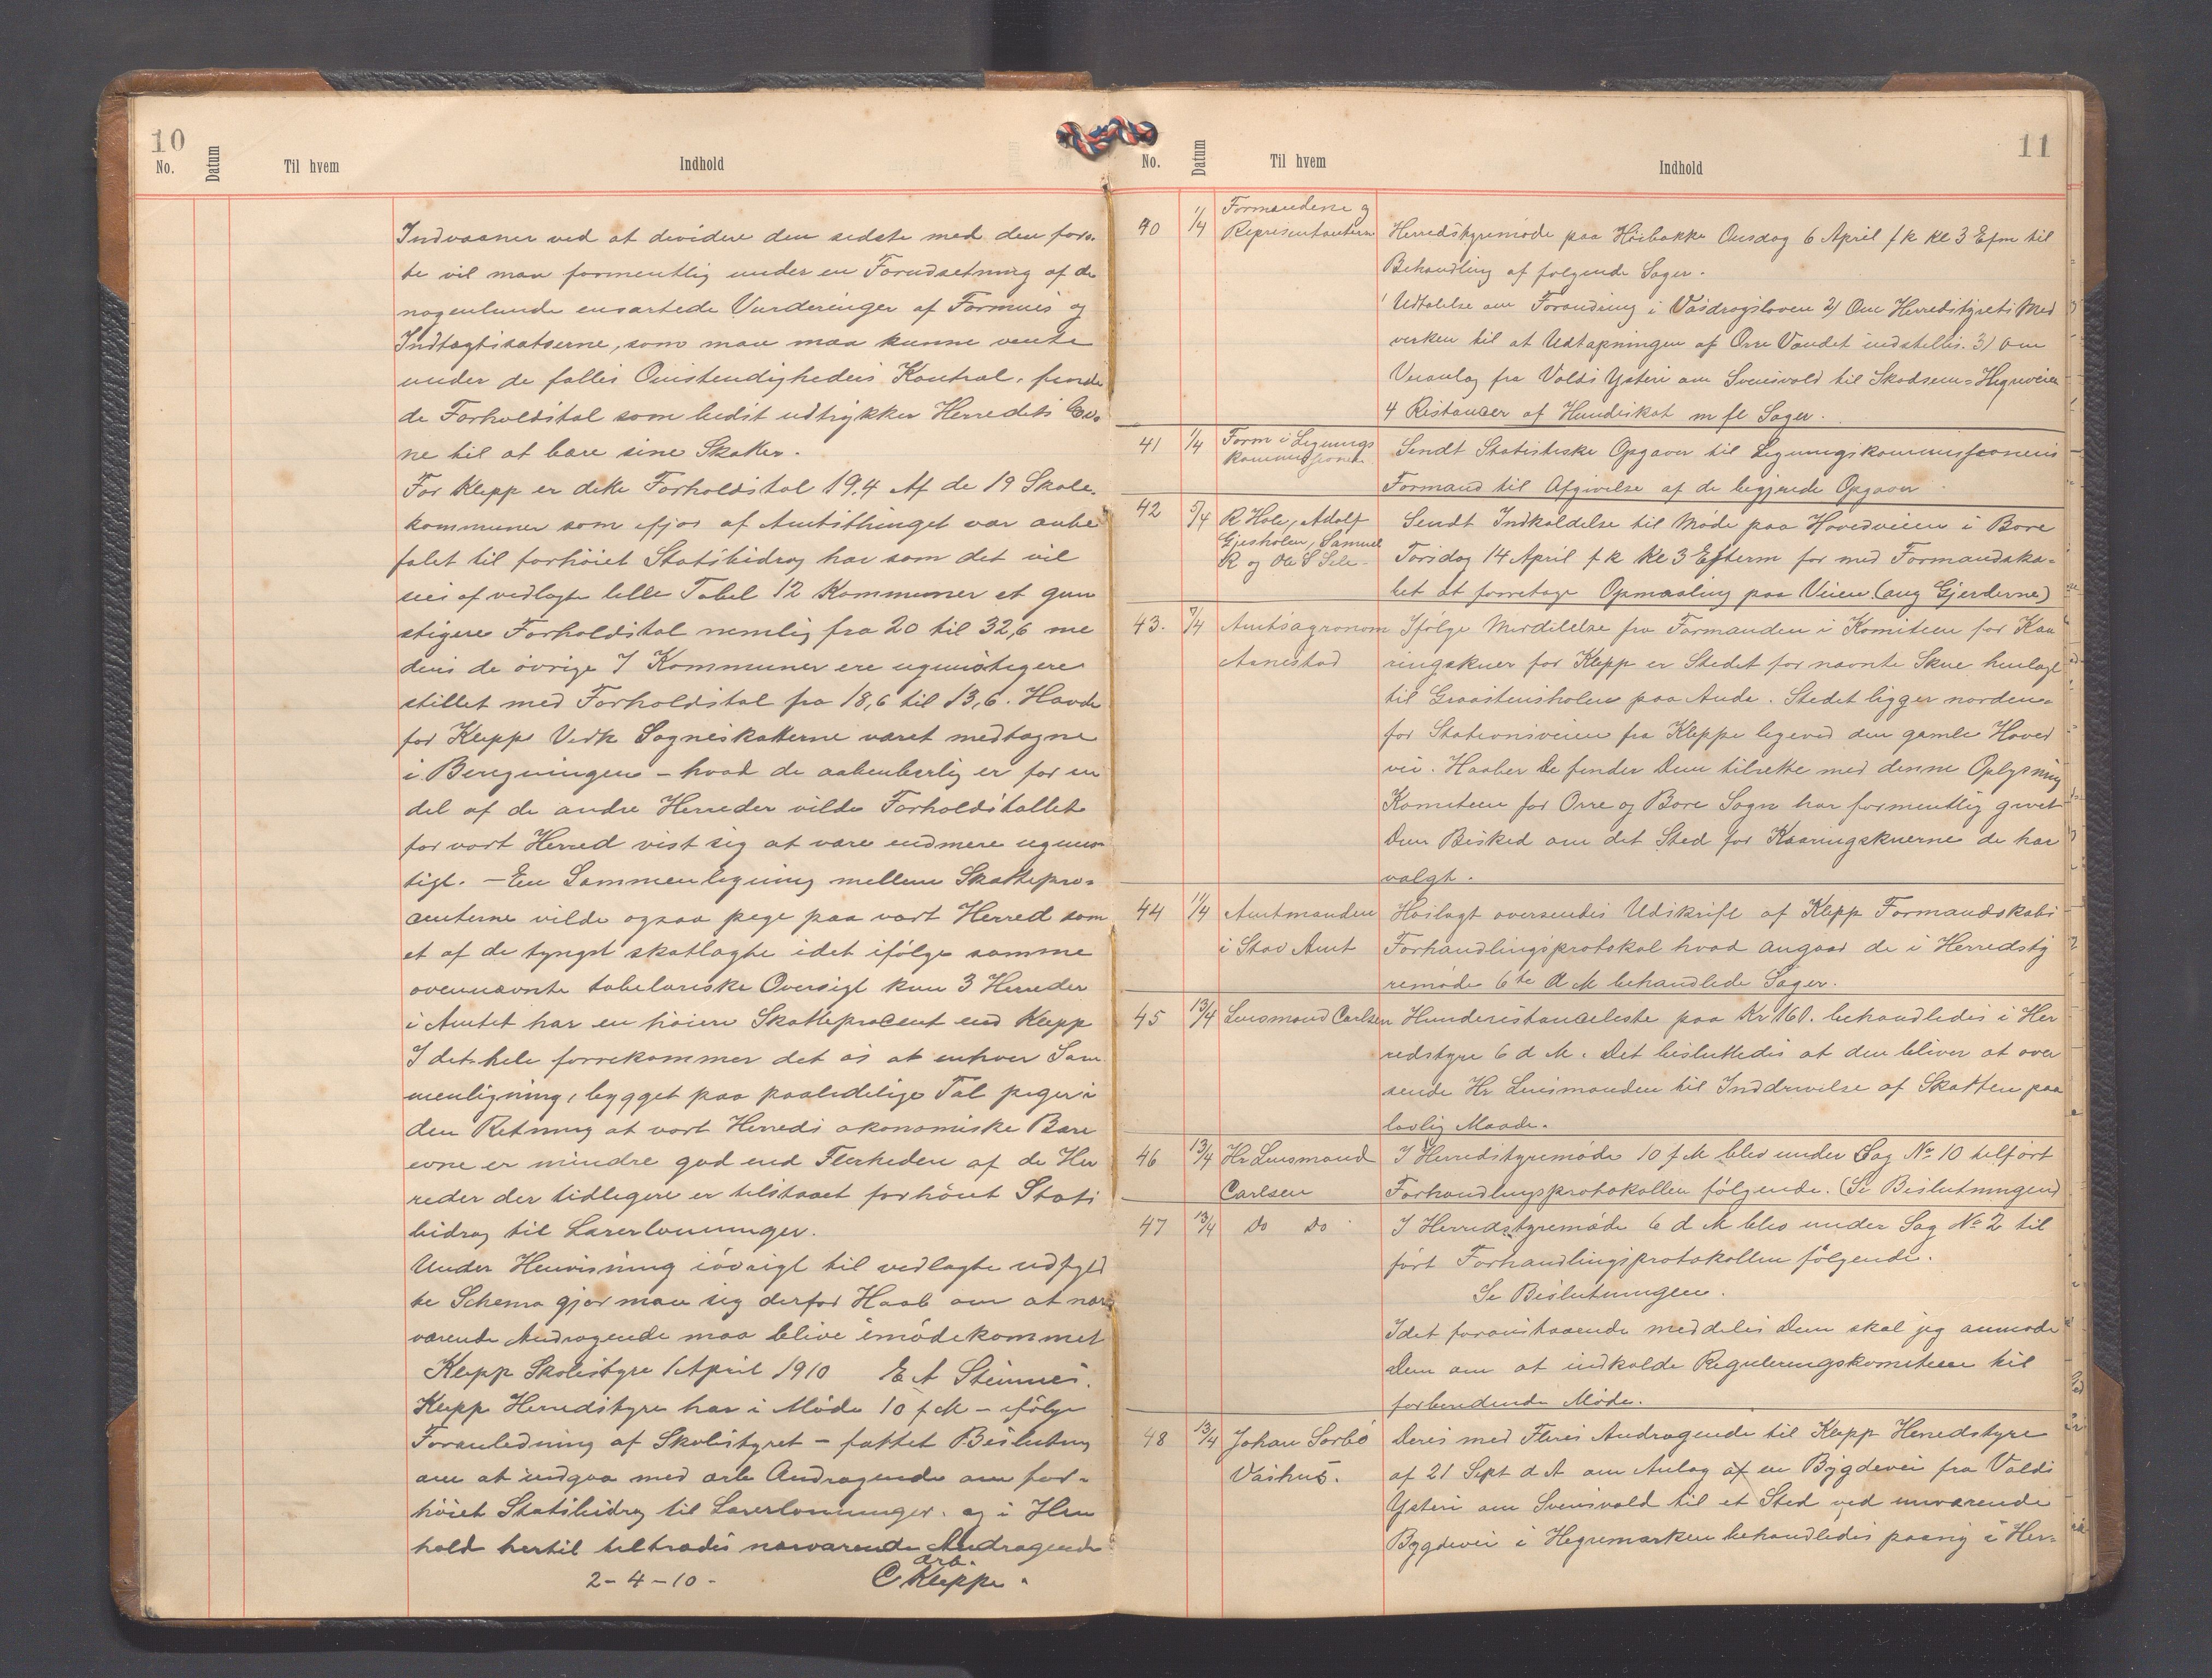 10
No. Datum Til hvem Indhold
Indvaaner ved at dividere den sidste med denførs-
te vil man formentlig under en Forudsetning af de
nogenlunde ensartede Vurderinger af Formues og
Indtægtssatserne, som man maa kunne vente
under de fælles Omstendigheders Kontrol, finde
de Forholdstal som bedst udtrykker Herredets Ev-
ne til at bære sine Skatter.
For Klepp er dette Forholdstal 19.4 Af de 19 Skole-
kommuner som ifjor af Amtsthinget var anbe
falet til forhøiet Statsbidrag har som det vil
sees af vedlagte lille Tabel 12 Kommuner et gun
stigere Forholdstal nemlig fra 20 til 32,6 me
dens de øvrige 7 Kommuner ere ugunstigere
stillet med Forholdstal fra 18,6 til 13,6. Havde
for Klepps Vedk Sogneskatterne været medtagne
i Beregningen – hvad de aabenbarlig er for en
del af de andre Herreder vilde Forholdstallet
for vort Herred vist sig at være endmere uguns
tigt. – En Sammenligning mellem Skattepro-
centerne vilde ogsaa pege paa vort Herred som
et af de tyngst skatlagte idet ifølge samme
ovennævnte tabelariske Oversigt kun 3 Herreder
i Amtet har en høiere Skatteprocent end Klepp
I det hele forekommer det os at enhver Sam
menligning, bygget paa paalidelige Tal peger i
den Retning at vort Herreds økonomiske Bære
evne er mindre god end Flerheden af de Her
reder der tidligere er tilstaaet forhöiet Stats
bidrag til Lærerlønninger.
Under Henvisning iøvrigt til vedlagte udfyld
te Schema gjør man sig derfor Haab om at nær
værende Andragende maa blive imødekommet
Klepp Skolestyre 1 April 1910 E A Stimnes.
Klepp Herredstyre har i Møde 10 f M – ifølge
Foranledning af Skolestyret – fattet Beslutning
om at indgaa med ærb Andragende om for-
høiet Statsbidrag til Lærerlønninger. og i Hen
hold hertil tiltrædes nærværende Andragende
2-4-10- Ærb.
C Kleppe.
11
No. Datum Til hvem Indhold
40 1/4 Formændene og
Representanterne Herredstyremöde paa Höibakke Onsdag 6 April f k kl 3 Efm til
Behandling af følgende Sager.
1 Udtalelse om Forandring i Vasdragsloven 2) Om Herredstyrets Med
virken til at Udtapningen af Orre Vandet indstilles. 3) Om
Veianlæg fra Volds Ysteri om Svensvold til Skadsem-Hegreveien
4 Ristancer af Hundeskat m fl Sager.
41 1/4 Form i Ligningskommissionen Sendt Statistiske Opgaver til Ligningskommissionens
Formand til Afgivelse af de begjærede Opgaver
42 5/4 R Hole, Adolf Sendt Indkaldelse til Møde paa Hovedveien i Bore
Gjesholen, Samuel Torsdag 14 April f k Kl 3 Efterm for med Formandska-
R og Ole S Sele- bet at foretage Opmaaling paa Veien (ang Gjerderne)
43. 7/4 Amtsagronom Ifølge Meddelelse fra Formanden i Komiteen for Kaa
Aanestad ringskuer for Klepp er Stedet for nævnte Skue henlagt
til Graastensholen paa Anda. Stedet ligger norden-
for Stationsveien fra Kleppe ligeved den gamle Hoved
vei. Haaber De finder Dem tilrette med denne Oplysning
Komiteen for Orre og Bore Sogn har formentlig givet
Dem Besked om det Sted for Kaaringskuerne de har
valgt.
44 11/4 Amtmanden Høilagt oversendes Udskrift af Klepp Formandskabs
i Stav Amt Forhandlingsprotokol hvad angaar de i Herredsty
remøde 6te d M behandlede Sager.
45 13/4 Lensmand Carlsen Hunderistanceliste paa Kr 160. behandledes i Her
redstyre 6 d M. Det besluttedes at den bliver at over
sende Hr Lensmanden til Inddrivelse af Skatten paa
lovlig Maade.
46 13/4 Hr Lensmand I Herredstyremøde 10 f M blev under Sag No 10 tilført
Carlsen Forhandlingsprotokollen følgende. (Se Beslutningen)
47 13/4 Do Do I Herredstyremøde 6 d M blev under Sag No 2 til
ført Forhandlingsprotokollen følgende.
Se Beslutningen.
Idet foranstaaende meddeles Dem skal jeg anmode
Dem om at indkalde Reguleringskomiteen til
forberedende Møde.
48 13/4 Johan Sørbö Deres med Fleres Andragende til Klepp Herredstyre
Vashus. af 21 Sept d A om Anlæg af en Bygdevei fra Volds
Ysteri om Svensvold til et Sted ved nuværende
Bygdevei i Hegremarken behandledes paany i Her-